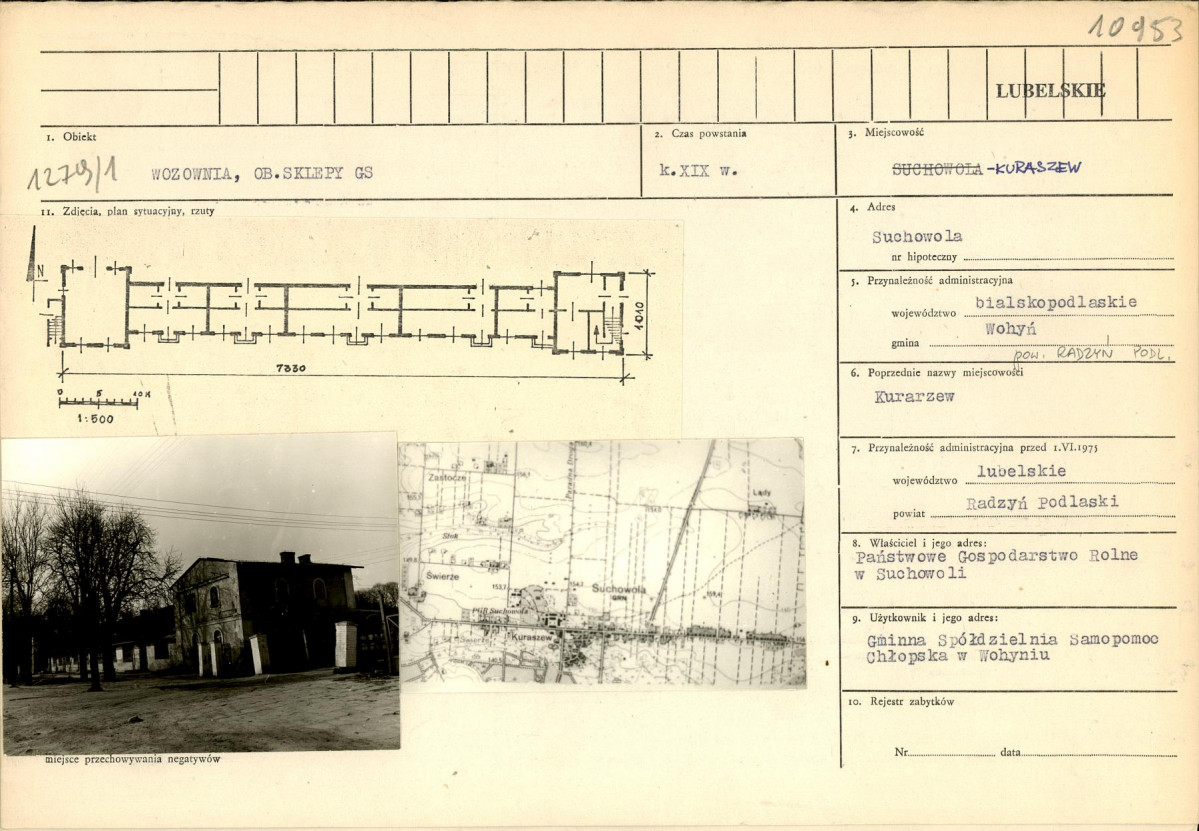 10953
LUBELSKIE
1. Obiekt
1279/1
WOZOWNIA, OB.SKLEPY GS
2. Czas powstania
k.XIX w.
3. Miejscowość
SUCHOWOLA-KURASZEW
11. Zdjęcia, plan sytuacyjny, rzuty
N
1010
7330
0 5 10M
1:500
4. Adres
Suchowola
nr hipoteczny
5. Przynależność administracyjna
województwo bialskopodlaskie
gmina Wohyń
pow. RADZYŃ PODL.
6. Poprzednie nazwy miejscowości
Kurarzew
7. Przynależność administracyjna przed 1.VI.1975
województwo lubelskie
powiat Radzyń Podlaski
8. Właściciel i jego adres:
Państwowe Gospodarstwo Rolne
w Suchowoli
9. Użytkownik i jego adres:
Gminna Spółdzielnia Samopomoc
Chłopska w Wohyniu
10. Rejestr zabytków
Nr data
Zastocze
Lady
Stok
Świerze
153,7
154,7
Suchowola
GRN
PGR Suchowola
Kuraszew
miejsce przechowywania negatywów